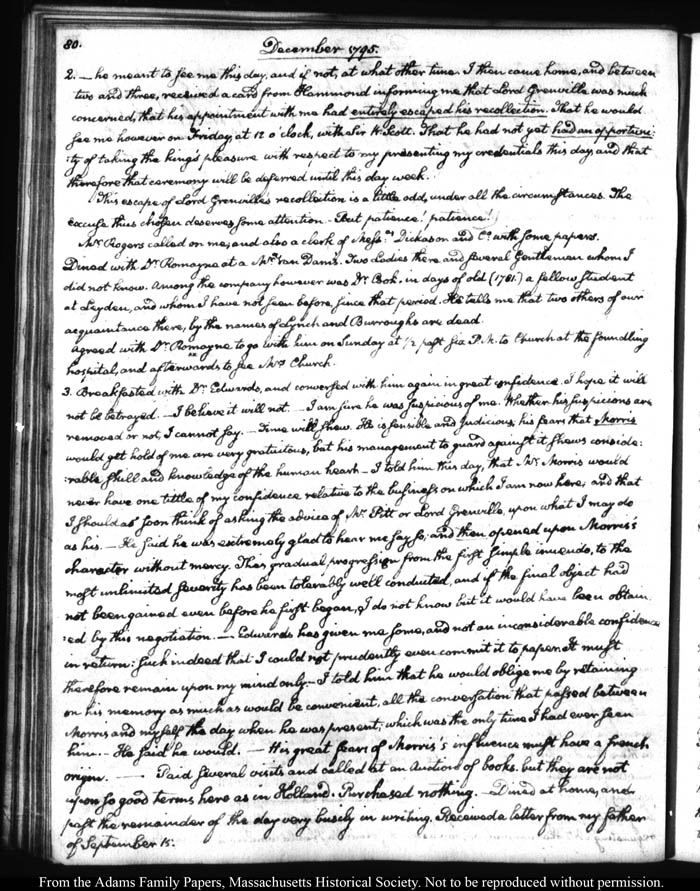 80.
December 1795.
2. — he meant to see me this day, and if not, at what other time. I then came home, and between
two and three, received a card from Hammond informing me that Lord Grenville was much
concerned, that his appointment with me had entirely escaped his recollection. That he would
see me however on Friday at 12 o'clock, with Sir W. Scott. That he had not yet had an opportuni:
:ty of taking the king's pleasure with respect to my presenting my credentials this day, and that
therefore that ceremony will be deferred until this day week.
This escape of Lord Grenville's recollection is a little odd, under all the circumstances. The
excuse thus chosen deserves some attention. But patience! patience!
Mr. Rogers called on me, and also a clerk of Mess.rs Dickason and Co. with some papers.
Dined with Dr. Romayne at a Mr. Van Dam's. Two Ladies there and several Gentlemen whom I
did not know. Among the company however was Dr. Cook, in days of old (1781.) a fellow student
at Leyden, and whom I have not seen before, since that period. He tells me that two others of our
acquaintance there, by the names of Lynch and Burroughs are dead.
Agreed with Dr. Romayne to go with him on Sunday at 1/2 past six P.M. to Church at the foundling
hospital, and afterwards to see Mrs. Church.
3. Breakfasted with Dr. Edwards, and conversed with him again in great confidence. I hope it will
not be betrayed. — I believe it will not. — I am sure he was suspicious of me. Whether his suspicions are
removed or not, I cannot say. — Time will shew. He is sensible and judicious, his fears that Morris
would get hold of me are very gratuitous, but his management to guard against it shews conside:
:rable skill and knowledge of the human heart. — I told him this day, that Mr. Morris would
never have one tittle of my confidence relative to the business on which I am now here; and that
I should as soon think of asking the advice of Mr. Pitt or Lord Grenville, upon what I may do
as his. — He said he was extremely glad to hear me say so; and then opened upon Morris's
character without mercy. This gradual progression from the first simple inuendo, to the
most unlimited severity has been tolerably well conducted, and if the final object had
not been gained even before he first began, I do not know but it would have been obtain
:ed by this negotiation. — Edwards has given me some, and not an inconsiderable confidence
in return: such indeed that I could not prudently even commit it to paper. It must
therefore remain upon my mind only. — I told him that he would oblige me by retaining
on his memory as much as would be convenient, all the conversation that passed between
Morris and myself the day when he was present, which was the only time I had ever seen
him. — He said he would. — His great fears of Morris's influence must have a french
origin. — — Paid several visits and called at an Auction of books. but they are not
upon so good terms here as in Holland. Purchased nothing. — Dined at home, and
past the remainder of the day very busily in writing. Received a letter from my father
of September 15.
From the Adams Family Papers, Massachusetts Historical Society. Not to be reproduced without permission.